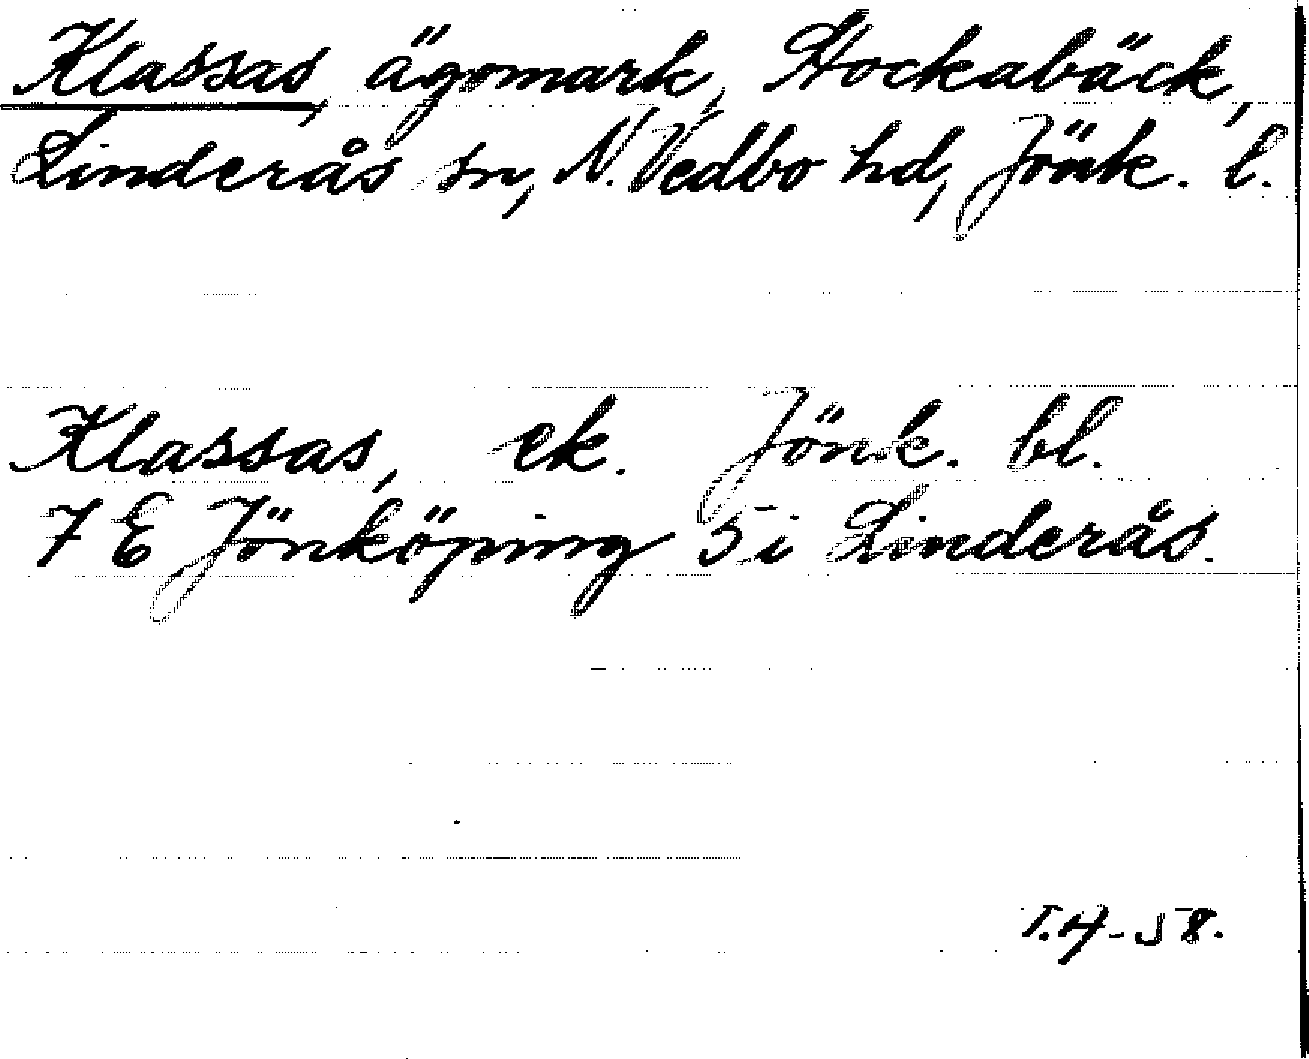 Klassas, ägomark, Stockabäck,
Linderås sn, N. Vedbo hd, Jönk. l.
Klassas, ek. Jönk. bl.
7 E Jönköping 5 i Linderås.
T.H-58.